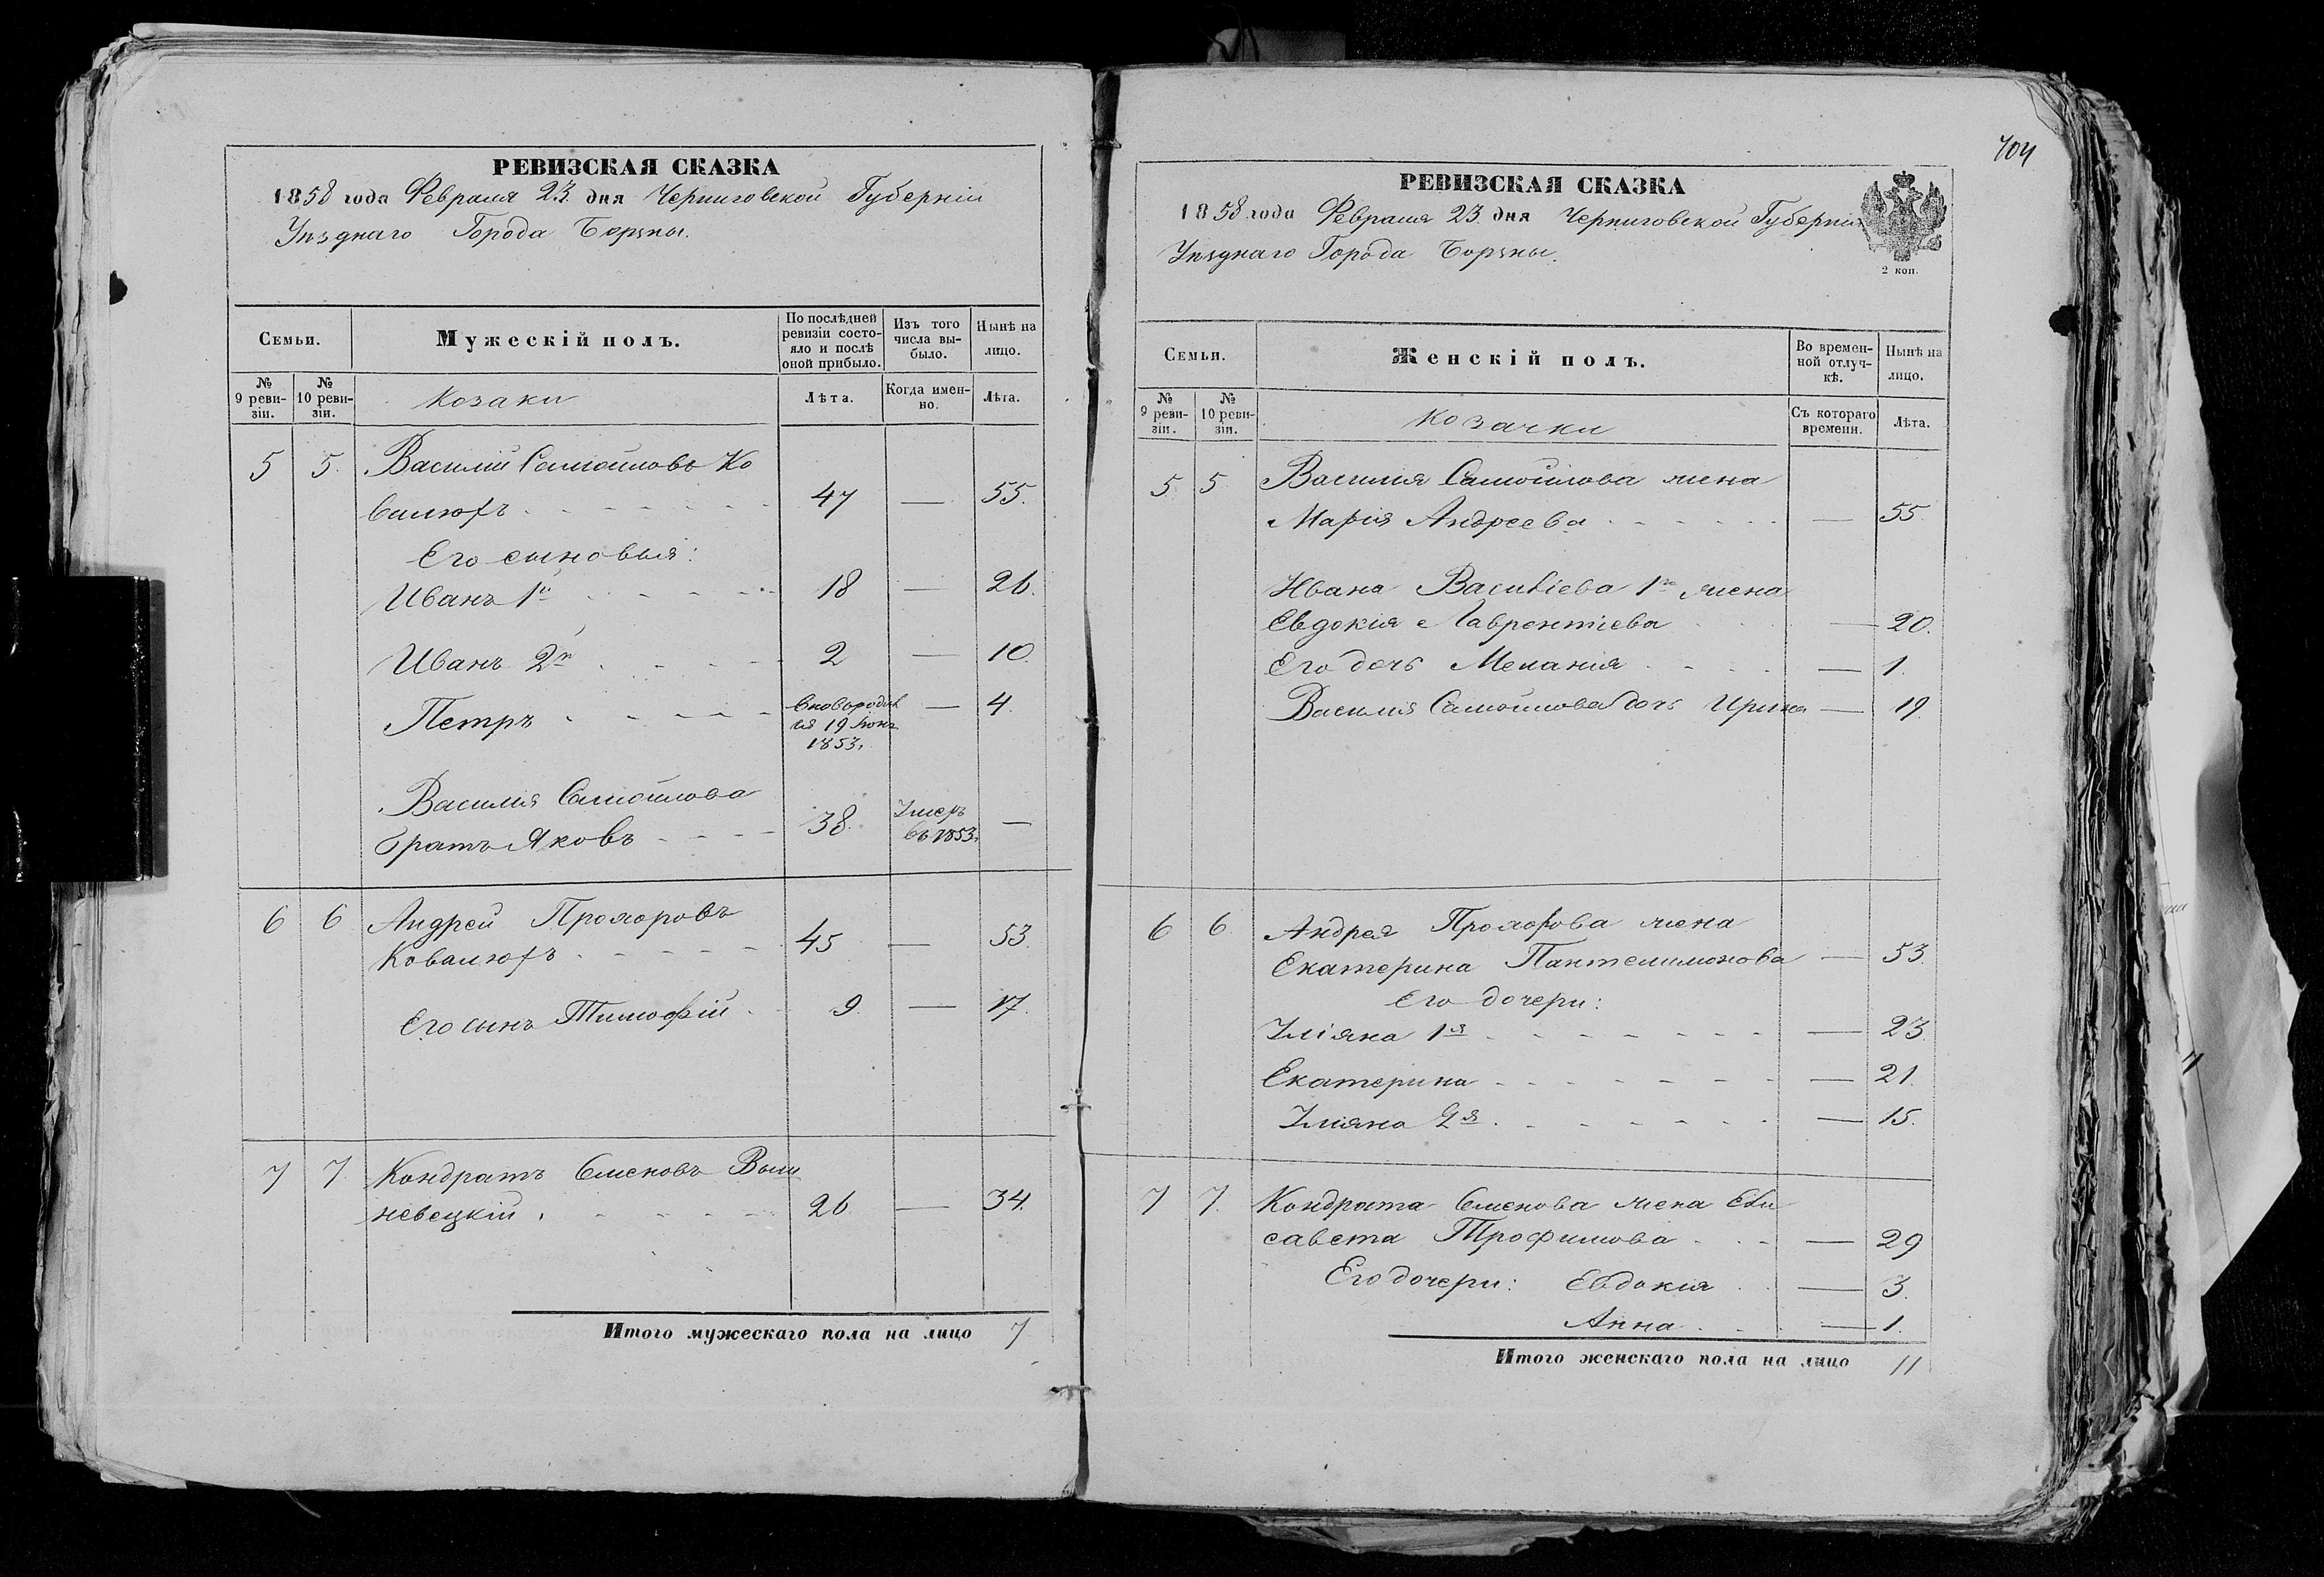 РЕВИЗСКАЯ СКАЗКА
1858 года Февраля 23 дня Черниговской Губерніи
Уѣзднаго Города Борзны.
Семьи.
Мужескій полъ.
По послѣдней ревизіи состояло и послѣ оной прибыло.
Изъ того числа выбыло.
Нынѣ на лицо.
№ 9 ревизіи.
№ 10 ревизіи.
Козаки
Лѣта.
Когда именно.
Лѣта.
5 5. Василій Самойловъ Ко
валюхъ 47 — 55.
Его сыновья:
Иванъ 1й 18 — 26.
Иванъ 2й 2 — 10.
Петръ — 4.
19 Іюня
1853.
Василія Самойлова
братъ Яковъ 38. Умеръ въ 1853. —
6 6 Андрей Прохоровъ
Ковалюхъ 45 — 53.
Его сынъ Тимофій 9. — 17.
7 7. Кондратъ Семеновъ Выш
невецкій 26 — 34.
Итого мужескаго пола на лицо 7
704
РЕВИЗСКАЯ СКАЗКА
1858 года Февраля 23 дня Черниговской Губерніи
Уѣзднаго Города Борзны.
2 коп.
Семьи.
Женскій полъ.
Во временной отлучкѣ.
Нынѣ на лицо.
№ 9 ревизіи.
№ 10 ревизіи.
Козачки
Съ котораго времени.
Лѣта.
5 5 Василія Самойлова жена
Марія Андреева — 55.
Ивана Василіева 1го жена
Евдокія Лаврентіева — 20.
Его дочь Меланія — 1.
Василія Самойлова дочь Ирина — 19.
6 6 Андрея Прохорова жена
Екатерина Пантелимонова — 53.
Его дочери:
Уліяна 1я — 23.
Екатерина — 21.
Уліяна 2я — 15.
7 7. Кондрата Семенова жена Ели
савета Трофимова — 29
Его дочери: Евдокія — 3.
Анна — 1.
Итого женскаго пола на лицо 11